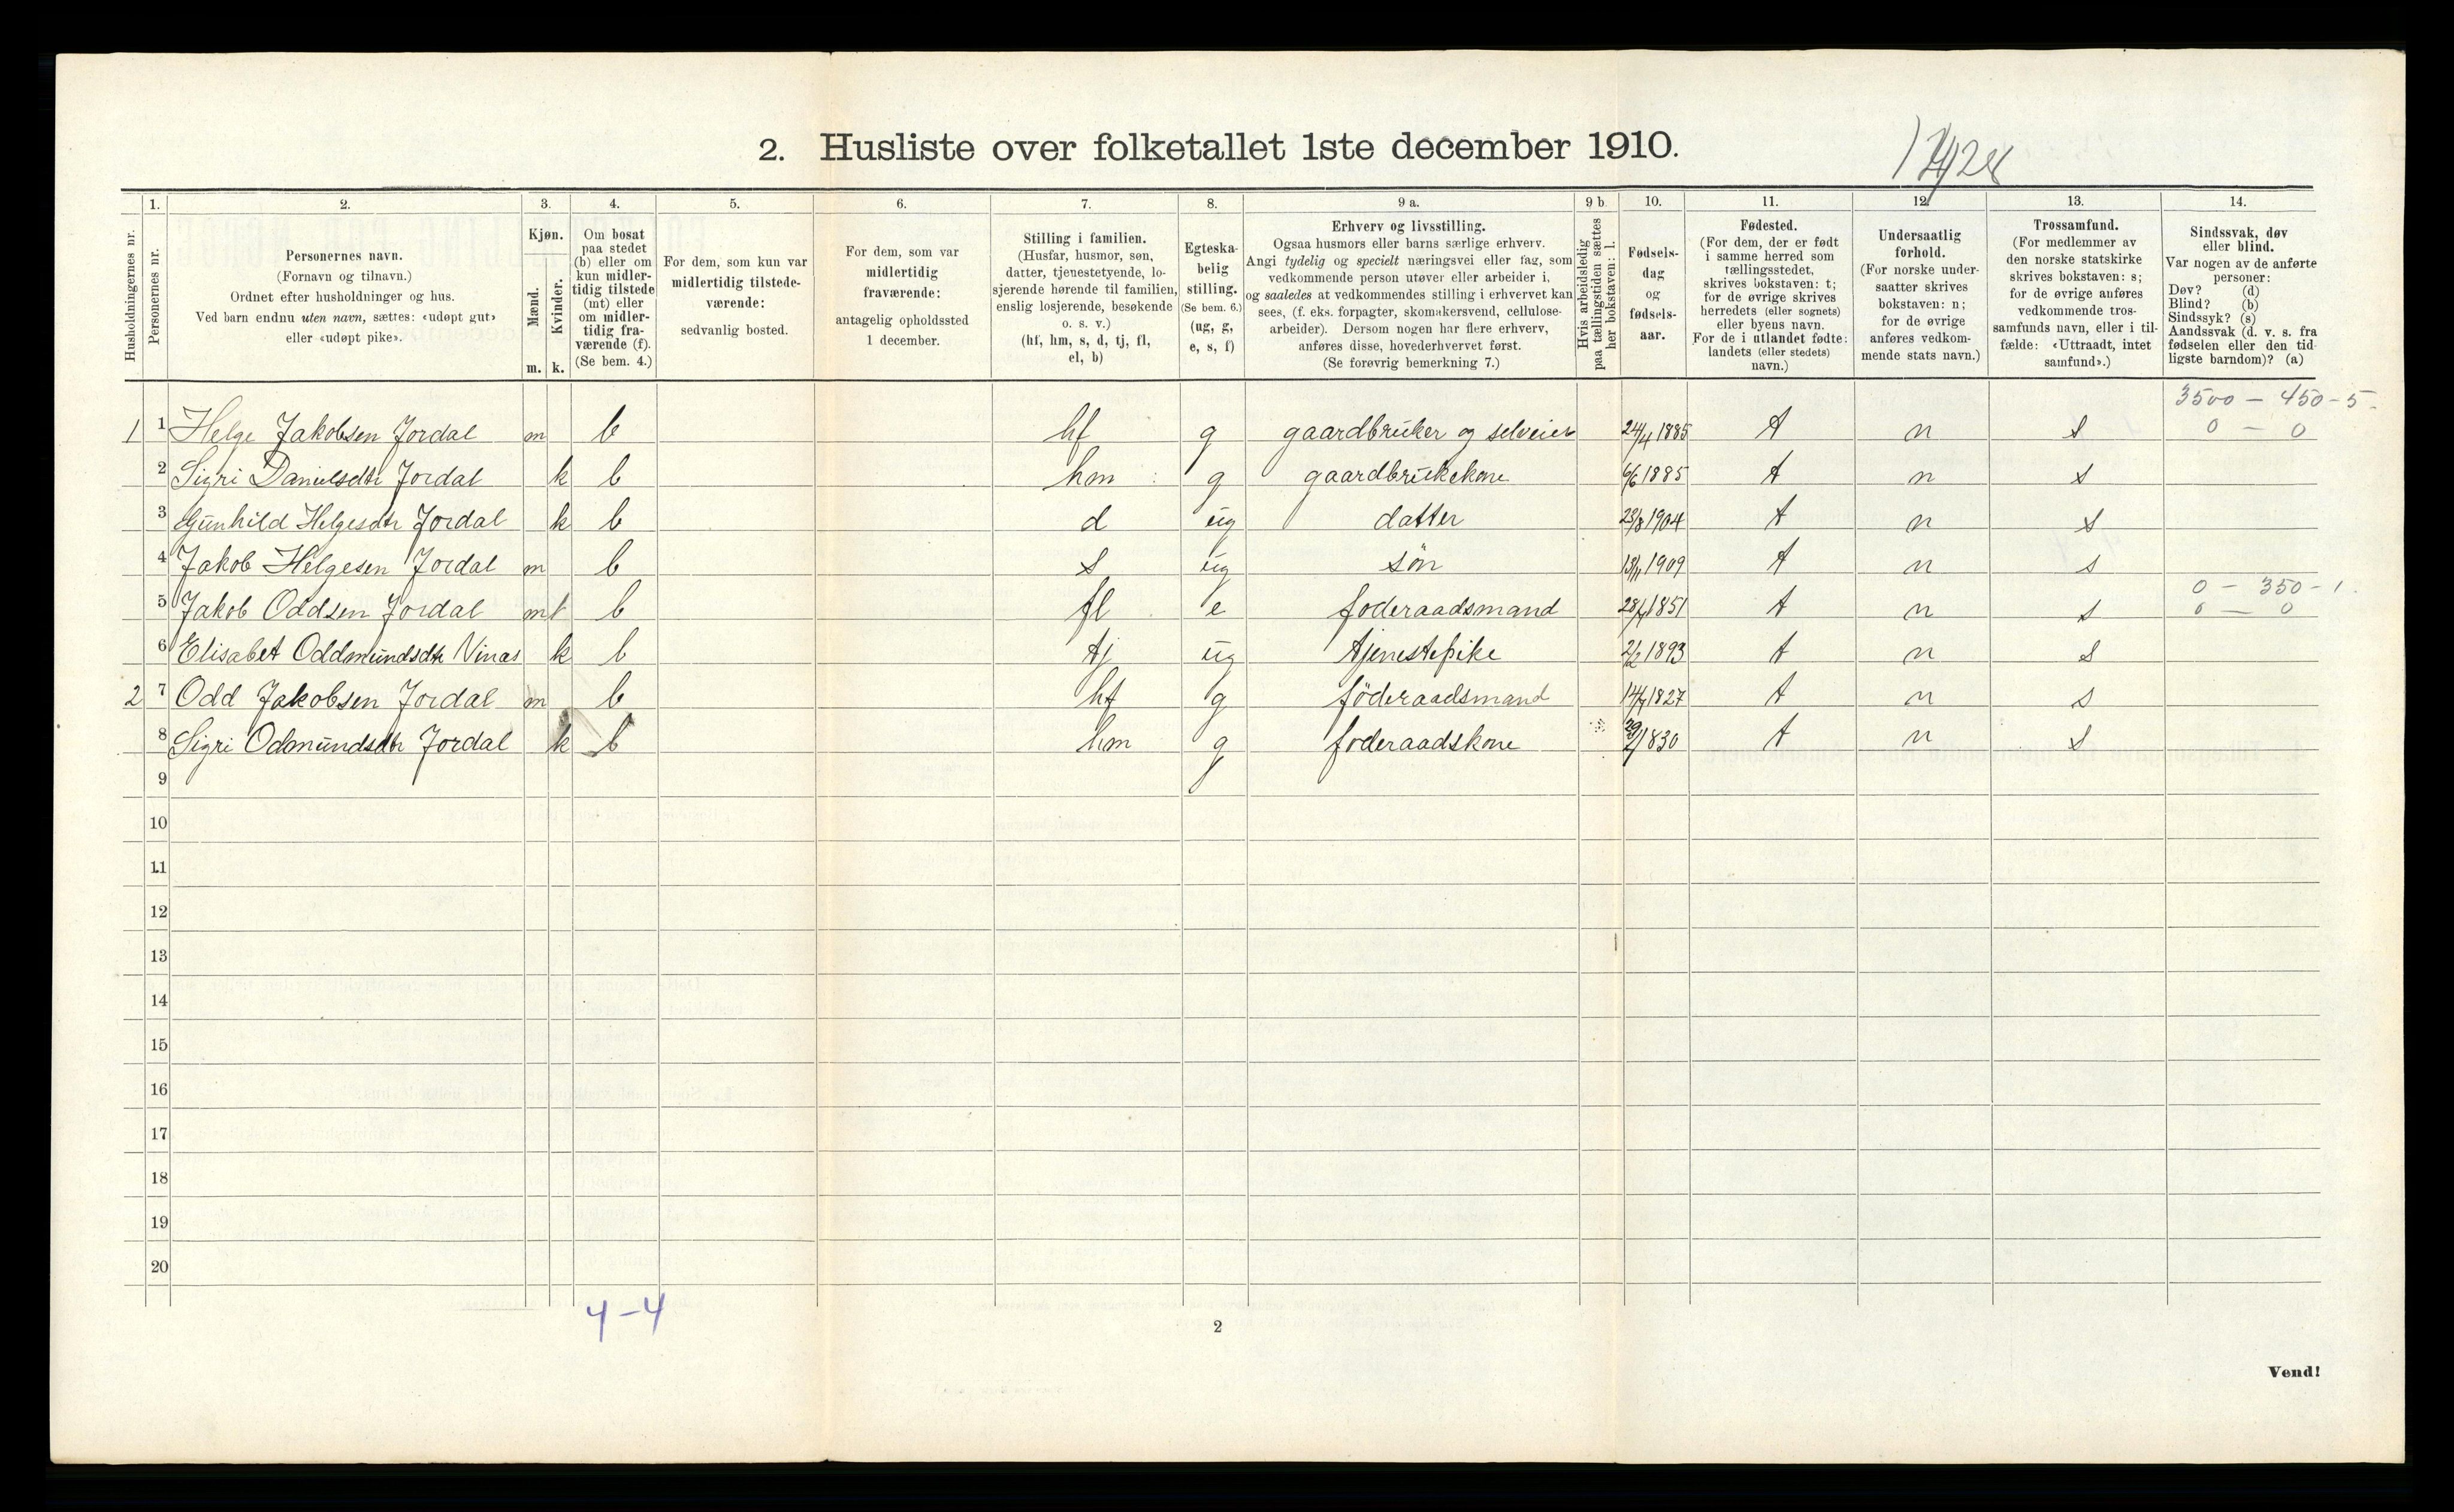 2. Husliste over folketallet 1ste december 1910.
Husholdningernes nr.
1.
Personernes nr.
2.
Personernes navn.
(Fornavn og tilnavn.)
Ordnet efter husholdninger og hus.
Ved barn endnu uten navn, sættes: «udøpt gut»
eller «udøpt pike».
3.
Kjøn.
Mænd.
Kvinder.
m. k.
4.
Om bosat
paa stedet
(b) eller om
kun midler-
tidig tilstede
(mt) eller
om midler-
tidig fra-
værende (f).
(Se bem. 4.)
5.
For dem, som kun var
midlertidig tilstede-
værende:
sedvanlig bosted.
6.
For dem, som var
midlertidig
fraværende:
antagelig opholdssted
1 december.
7.
Stilling i familien.
(Husfar, husmor, søn,
datter, tjenestetyende, lo-
sjerende hørende til familien,
enslig losjerende, besøkende
o. s. v.)
(hf, hm, s, d, tj, fl,
el, b)
8.
Egteska-
belig
stilling.
(Se bem. 6.)
(ug, g,
e, s, f)
9 a.
Erhverv og livsstilling.
Ogsaa husmors eller barns særlige erhverv.
Angi tydelig og specielt næringsvei eller fag, som
vedkommende person utøver eller arbeider i,
og saaledes at vedkommendes stilling i erhvervet kan
sees, (f. eks. forpagter, skomakersvend, cellulose-
arbeider). Dersom nogen har flere erhverv,
anføres disse, hovederhvervet først.
(Se forøvrig bemerkning 7.)
9 b.
Hvis arbeidsledig
paa tællingstiden sættes
her bokstaven: l.
10.
Fødsels-
dag
og
fødsels-
aar.
11.
Fødested.
(For dem, der er født
i samme herred som
tællingsstedet,
skrives bokstaven: t;
for de øvrige skrives
herredets (eller sognets)
eller byens navn.
For de i utlandet fødte:
landets (eller stedets)
navn.)
12.
Undersaatlig
forhold.
(For norske under-
saatter skrives
bokstaven: n;
for de øvrige
anføres vedkom-
mende stats navn.)
13.
Trossamfund.
(For medlemmer av
den norske statskirke
skrives bokstaven: s;
for de øvrige anføres
vedkommende tros-
samfunds navn, eller i til-
fælde: «Uttraadt, intet
samfund».)
14.
Sindssvak, døv
eller blind.
Var nogen av de anførte
personer:
Døv? (d)
Blind? (b)
Sindssyk? (s)
Aandssvak (d. v. s. fra
fødselen eller den tid-
ligste barndom)? (a)
3500 - 450 - 5.
1 1 Helge Jakobsen Jordal m b hf g gaardbruker og selveier 24/4 1885 t n s 0 - 0
2 Sigri Danielsdtr Jordal k b hm g gaardbrukekone 6/6 1885 t n s
3 Gunhild Helgesdtr Jordal k b d ug datter 23/8 1904 t n s
4 Jakob Helgesen Jordal m b s ug søn 13/11 1909 t n s
0 - 350 - 1.
5 Jakob Oddsen Jordal m b fl e foderaadsmand 1851 t n s 0 - 0
6 Elisabet Oddmundsdtr Vinas k b tj ug tjenestepike 2/2 1893 t n s
2 7 Odd Jakobsen Jordal m b hf g føderaadsmand 1827 t n s
8 Sigri Odmundsdtr Jordal k b hm g foderaadskone 1830 t n s
9
10
11
12
13
14
15
16
17
18
19
20
4-4
2
Vend!